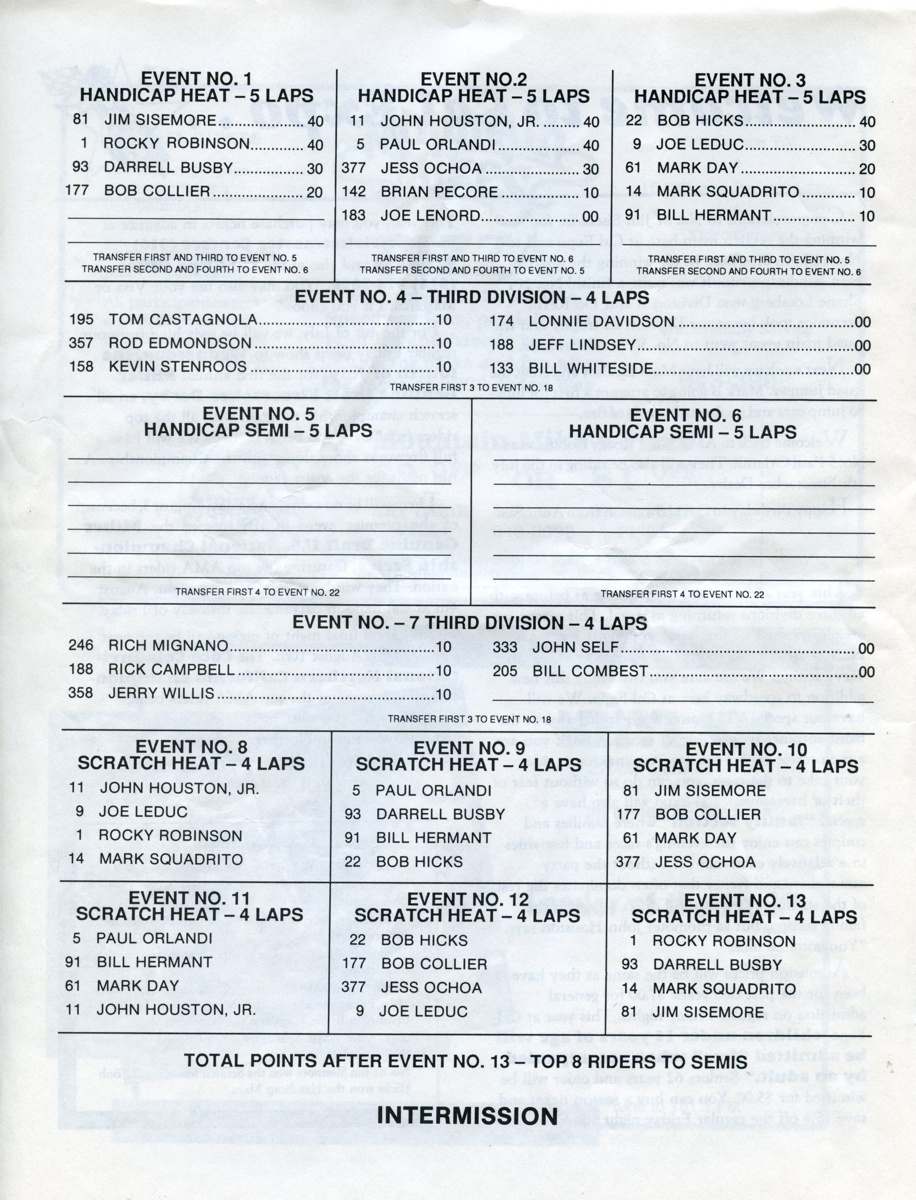 EVENT NO. 1
HANDICAP HEAT – 5 LAPS
81 JIM SISEMORE................... 40
1 ROCKY ROBINSON............ 40
93 DARRELL BUSBY............... 30
177 BOB COLLIER................... 20
TRANSFER FIRST AND THIRD TO EVENT NO. 5
TRANSFER SECOND AND FOURTH TO EVENT NO. 6
EVENT NO.2
HANDICAP HEAT – 5 LAPS
11 JOHN HOUSTON, JR. .... 40
5 PAUL ORLANDI................. 40
377 JESS OCHOA.................. 30
142 BRIAN PECORE.............. 10
183 JOE LENORD................... 00
TRANSFER FIRST AND THIRD TO EVENT NO. 6
TRANSFER SECOND AND FOURTH TO EVENT NO. 5
EVENT NO. 3
HANDICAP HEAT – 5 LAPS
22 BOB HICKS...................... 40
9 JOE LEDUC...................... 30
61 MARK DAY........................ 20
14 MARK SQUADRITO........... 10
91 BILL HERMANT................ 10
TRANSFER FIRST AND THIRD TO EVENT NO. 5
TRANSFER SECOND AND FOURTH TO EVENT NO. 6
EVENT NO. 4 – THIRD DIVISION – 4 LAPS
195 TOM CASTAGNOLA.................................. 10
357 ROD EDMONDSON................................... 10
158 KEVIN STENROOS.................................... 10
174 LONNIE DAVIDSON.................................00
188 JEFF LINDSEY.......................................00
133 BILL WHITESIDE.....................................00
TRANSFER FIRST 3 TO EVENT NO. 18
EVENT NO. 5
HANDICAP SEMI – 5 LAPS
TRANSFER FIRST 4 TO EVENT NO. 22
EVENT NO. 6
HANDICAP SEMI – 5 LAPS
TRANSFER FIRST 4 TO EVENT NO. 22
EVENT NO. – 7 THIRD DIVISION – 4 LAPS
246 RICH MIGNANO....................................... 10
188 RICK CAMPBELL..................................... 10
358 JERRY WILLIS......................................... 10
333 JOHN SELF............................................ 00
205 BILL COMBEST......................................00
TRANSFER FIRST 3 TO EVENT NO. 18
EVENT NO. 8
SCRATCH HEAT – 4 LAPS
11 JOHN HOUSTON, JR.
9 JOE LEDUC
1 ROCKY ROBINSON
14 MARK SQUADRITO
EVENT NO. 9
SCRATCH HEAT – 4 LAPS
5 PAUL ORLANDI
93 DARRELL BUSBY
91 BILL HERMANT
22 BOB HICKS
EVENT NO. 10
SCRATCH HEAT – 4 LAPS
81 JIM SISEMORE
177 BOB COLLIER
61 MARK DAY
377 JESS OCHOA
EVENT NO. 11
SCRATCH HEAT – 4 LAPS
5 PAUL ORLANDI
91 BILL HERMANT
61 MARK DAY
11 JOHN HOUSTON, JR.
EVENT NO. 12
SCRATCH HEAT – 4 LAPS
22 BOB HICKS
177 BOB COLLIER
377 JESS OCHOA
9 JOE LEDUC
EVENT NO. 13
SCRATCH HEAT – 4 LAPS
1 ROCKY ROBINSON
93 DARRELL BUSBY
14 MARK SQUADRITO
81 JIM SISEMORE
TOTAL POINTS AFTER EVENT NO. 13 – TOP 8 RIDERS TO SEMIS
INTERMISSION